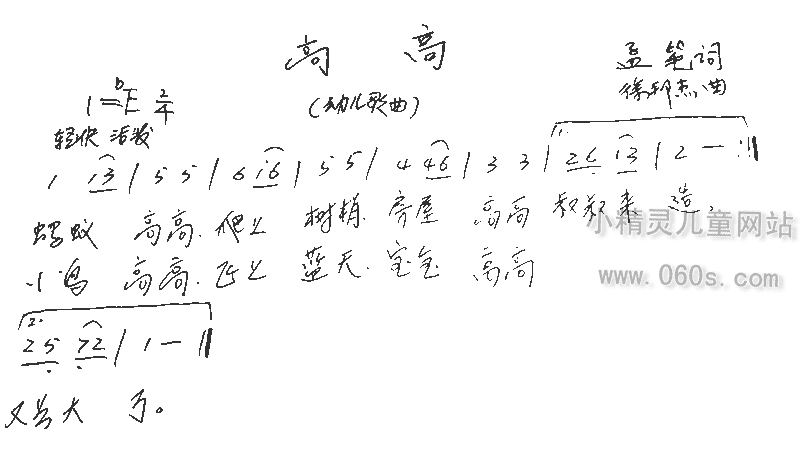 高 高
孟 笔词
1=bE 2/4
(幼儿歌曲)
徐邦杰曲
轻快 活发
1 13 | 5 5 | 6 i6 | 5 5 | 4 46 | 3 3 | 1. 26 13 | 2 — :||
蚂蚁 高高. 爬上 树梢. 房屋 高高 叔叔来 造.
小鸟 高高. 飞上 蓝天. 宝宝 高高
小精灵儿童网站
www.060s.com
2. 25 72 | 1 — ||
又长大 了。